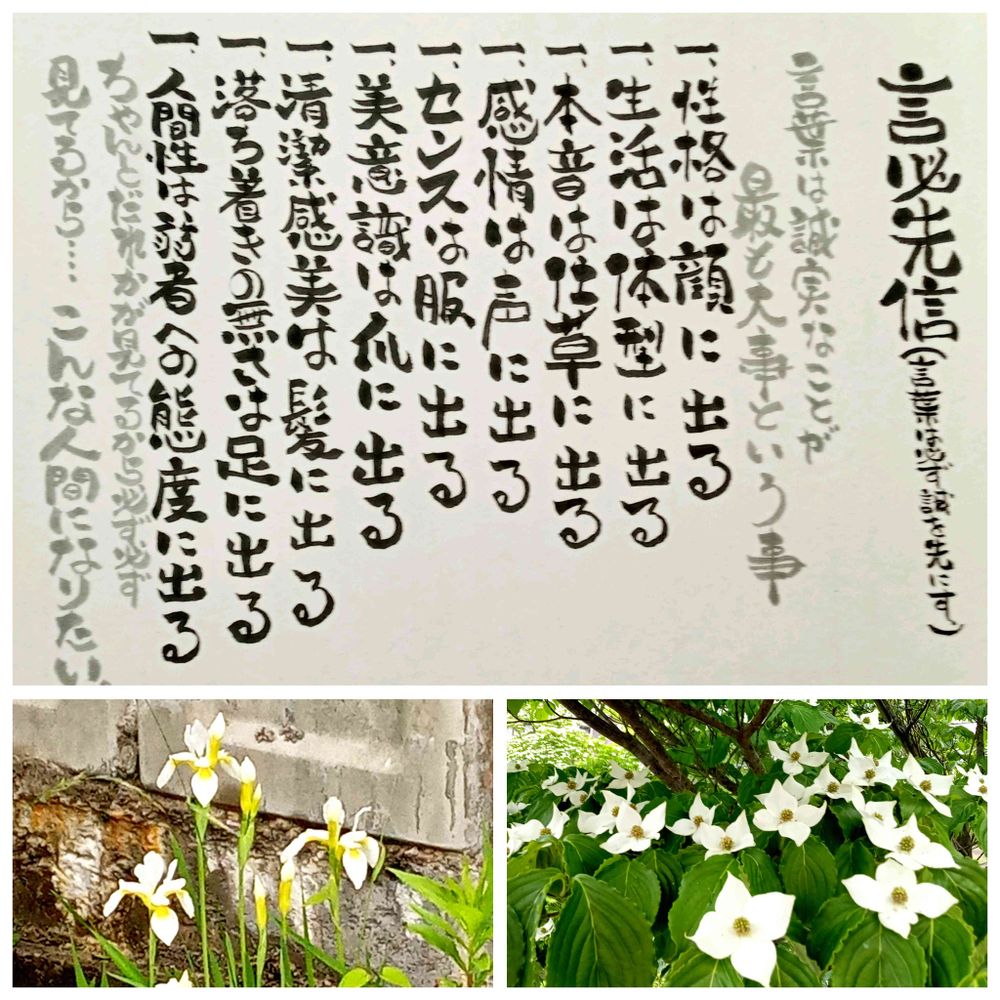 言必先信(言葉は必ず誠を先にす。)
言葉は誠実なことが
最も大事という事
一、性格は顔に出る
一、生活は体型に出る
一、本音は仕草に出る
一、感情は声に出る
一、センスは服に出る
一、美意識は爪に出る
一、清潔感美は髪に出る
一、落ち着きの無さは足に出る
一、人間性は弱者への態度に出る
ちゃんとだれかが見てるから必ず必ず
見てるから…… こんな人間になりたい。